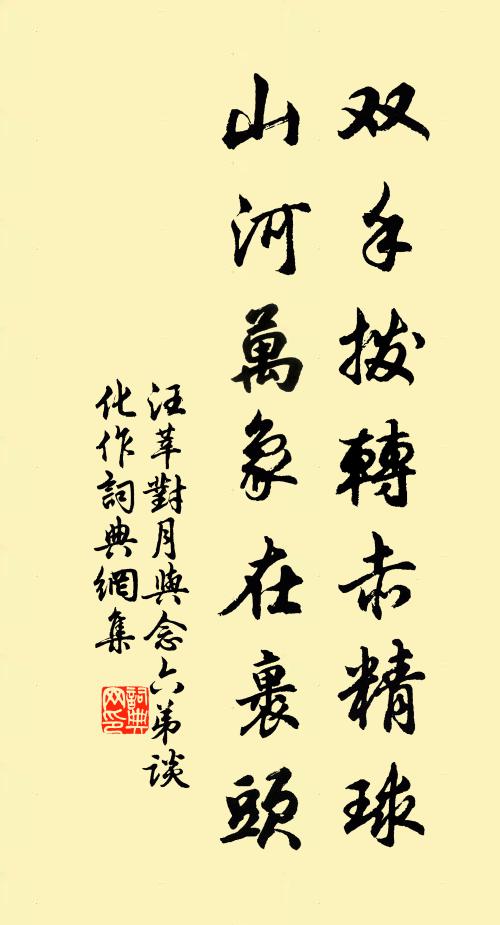 双手拨轉赤精球
山河萬象在裏頭
汪莘對月與念六弟談
化作詞典網集
詞典
网印